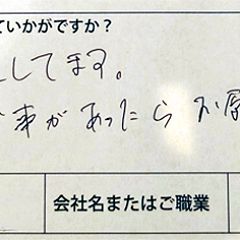 ていかがですか?
してます。
事があったら お
会社名またはご職業